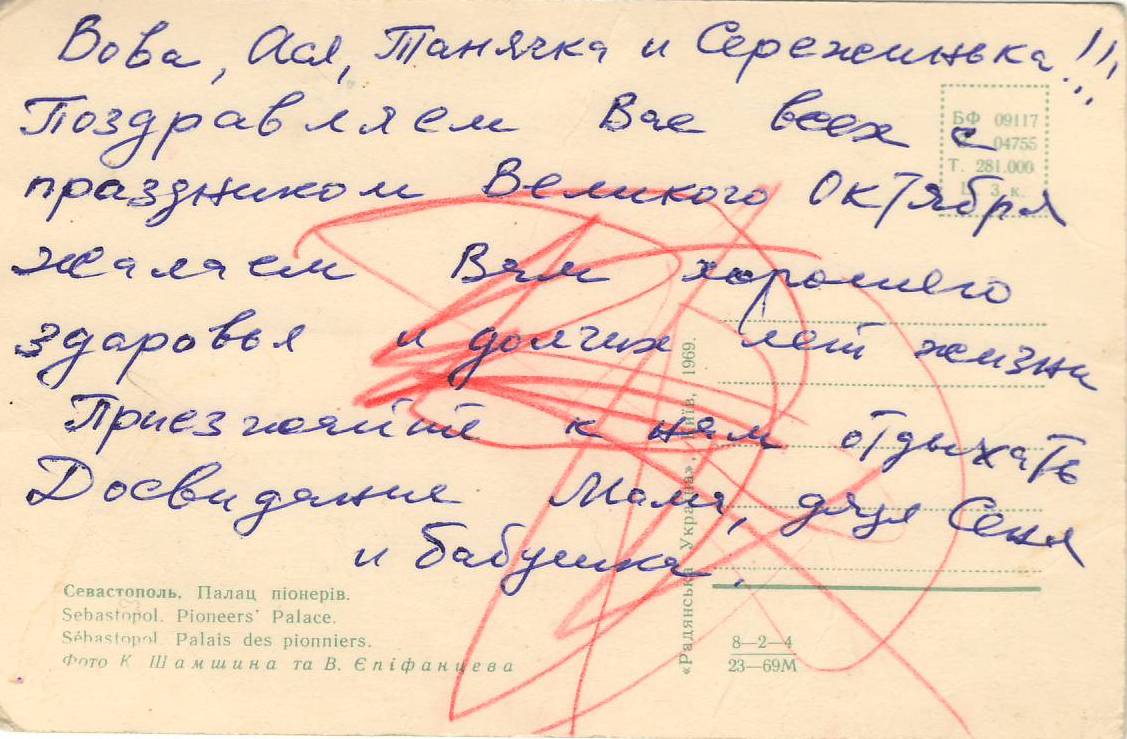 Вова, Ася, Танячка и Сережинька!!!
Поздравляем Вас всех с
праздником Великого Октября
жалаем Вам хорошего
здоровья и долгих лет жизни
Приезжяйте к ням отдыхать
Досвидания Мама, дядя Сеня
и бабушка.
БФ 09117
04755
Т. 281.000
Ц. 3 к.
«Радянська Україна», Київ, 1969.
Севастополь. Палац піонерів.
Sebastopol. Pioneers' Palace.
Sébastopol. Palais des pionniers.
Фото К Шамшина та В. Єпіфанцева
8—2—4
23—69М